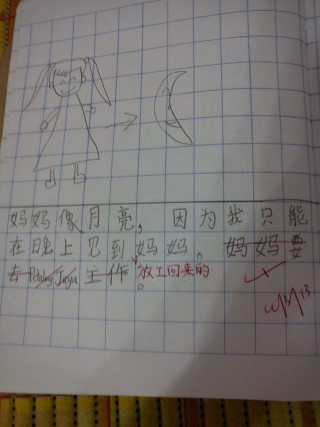 妈妈像月亮。因为我只能
在晚上见到妈妈。妈妈要
去 Petaling Jaya 工作放工回来的。